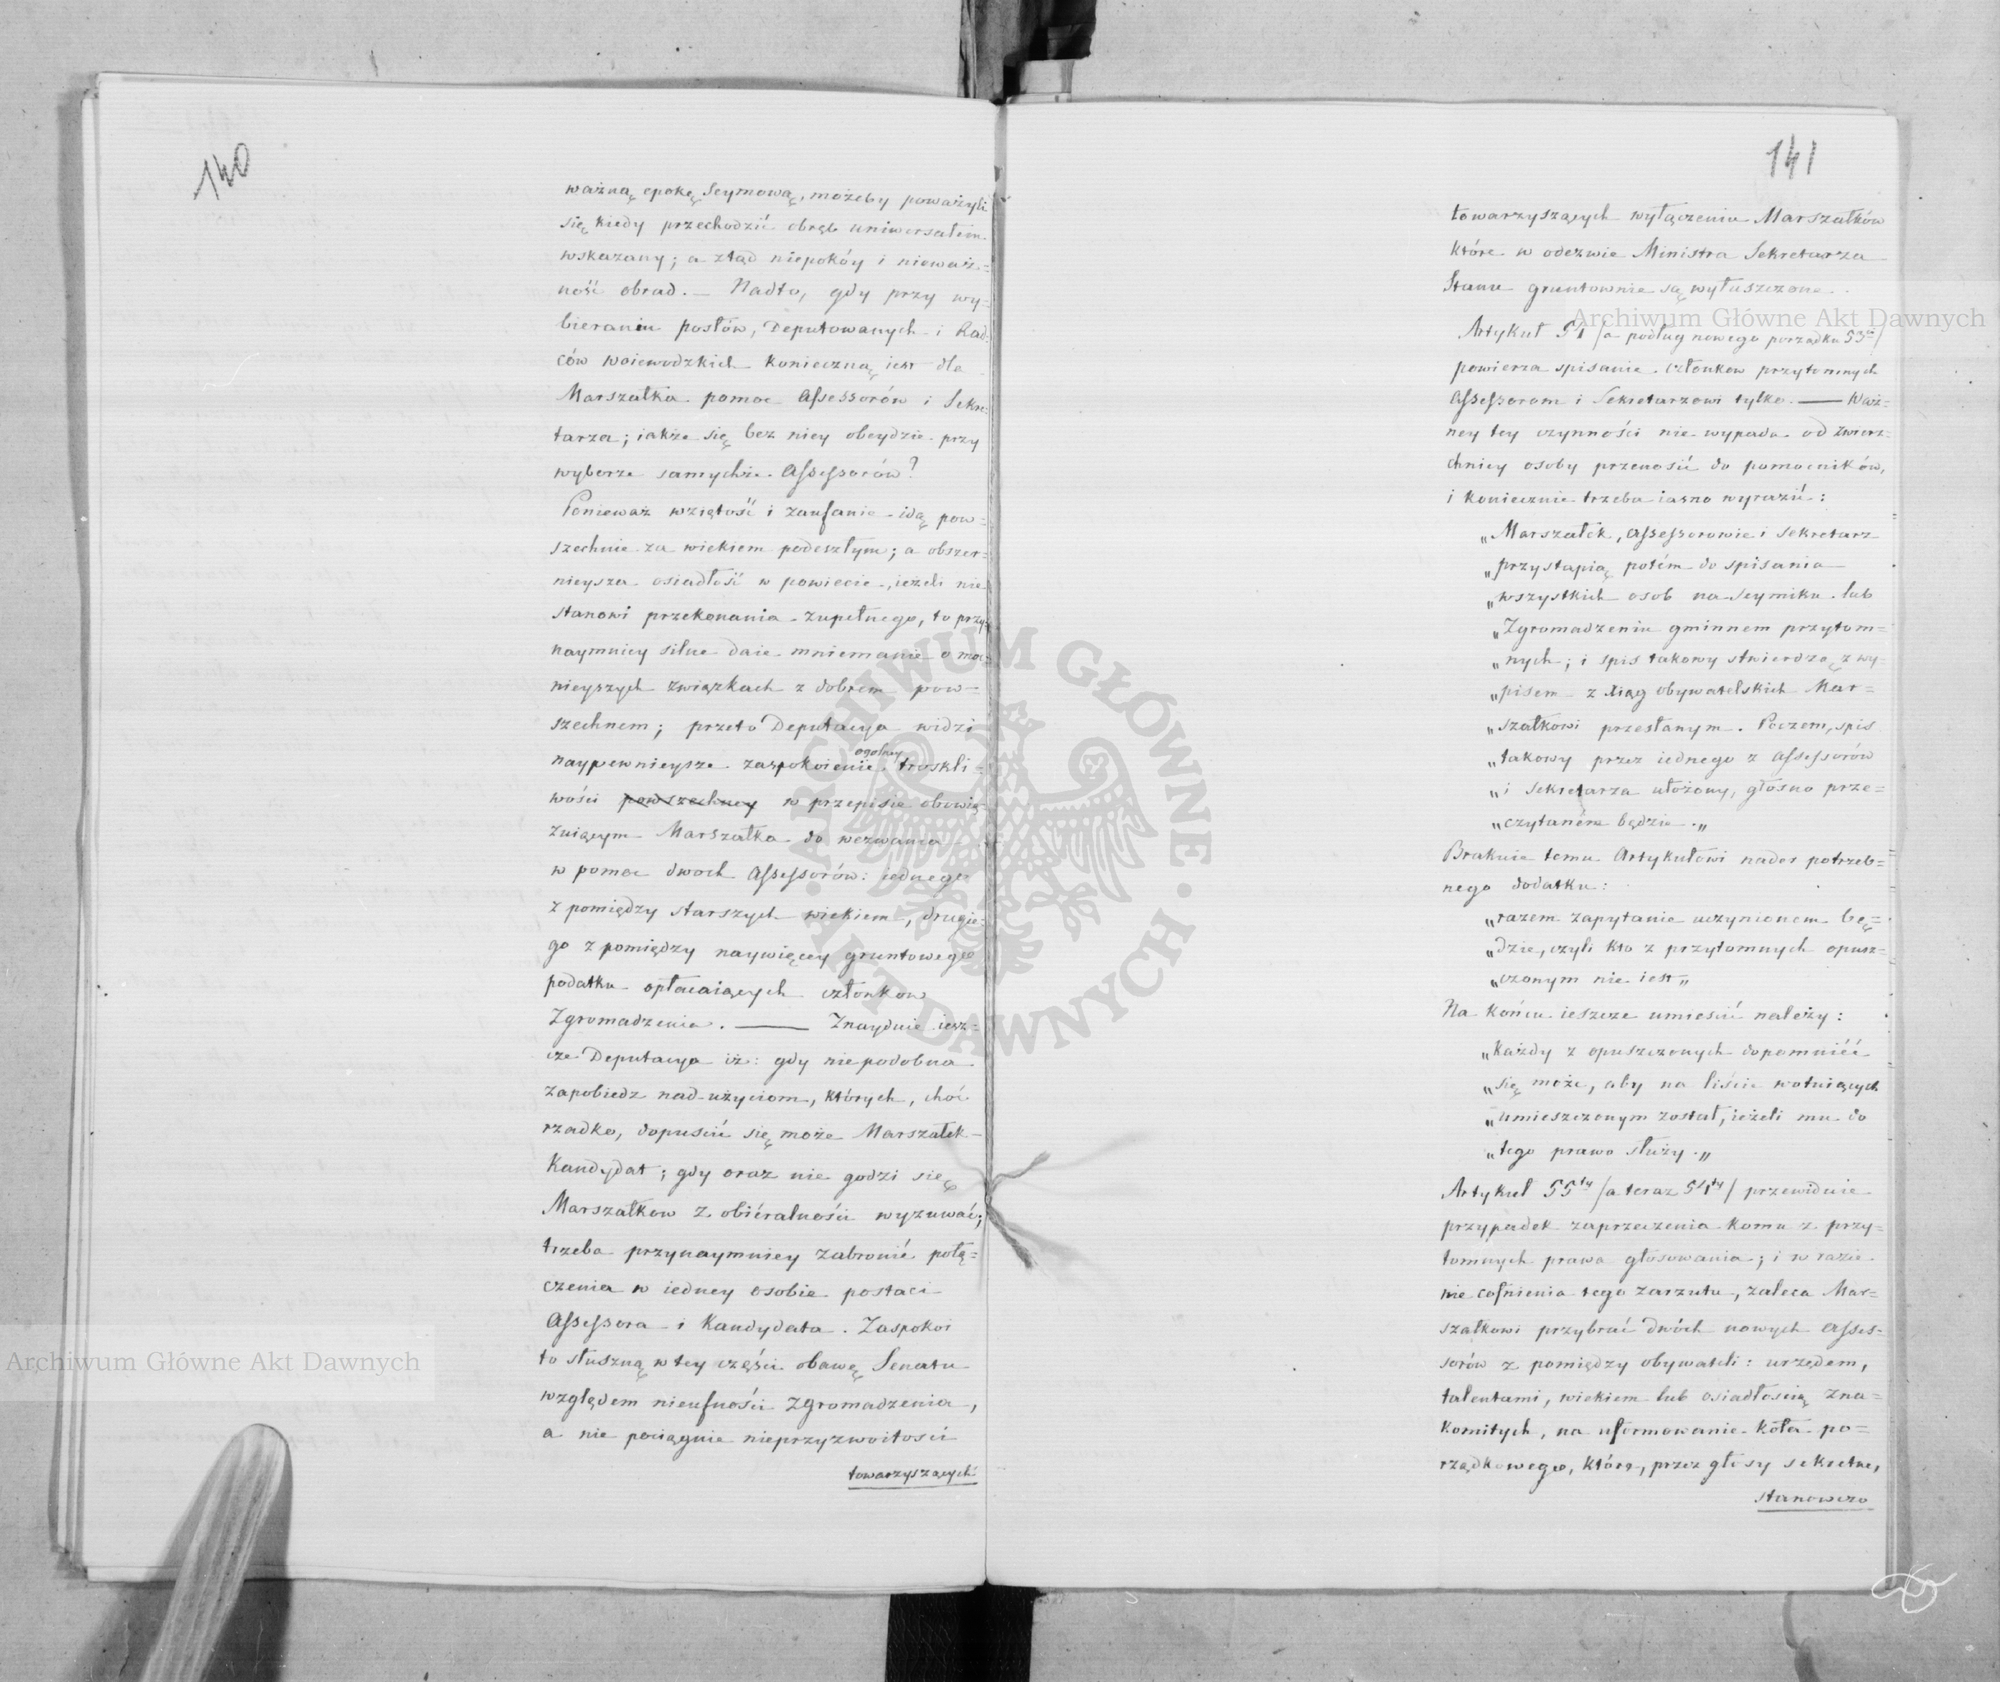 140
ważną epokę Seymową, możeby poważyli
się kiedy przechodzić obręb uniwersałem
wskazany; a ztąd niepokóy i nieważ=
ność obrad. — Nadto, gdy przy wy=
bieraniu posłów, Deputowanych i Rad=
ców Woiewodzkich konieczną iest dla
Marszałka pomoc Assessorów i Sekre=
tarza; iakże się bez niey obeydzie przy
wyborze samychże Assessorów?
Ponieważ wziętość i zaufanie idą pow=
szechnie za wiekiem podeszłym; a obszer=
nieysza osiadłość w powiecie, ieżeli nie
stanowi przekonania zupełnego, to przy=
naymniey silne daie mniemanie o moc=
nieyszych związkach z dobrem pow=
szechnem; przeto Deputacya widzi
naypewnieysze zaspokoienie ogolney troskli=
wości powszechney w przepisie obowią=
zuiącym Marszałka do wezwania
w pomoc dwoch Assessorów: iednego
z pomiędzy starszych wiekiem, drugie=
go z pomiędzy naywięcey gruntowego
podatku opłacaiących członkow
Zgromadzenia. — Znayduie iesz=
cze Deputacya iż: gdy niepodobna
zapobiedz nad użyciom, których, choć
rzadko, dopuścić się może Marszałek
Kandydat; gdy oraz nie godzi się
Marszałkow z obiéralności wyzuwać;
trzeba przynaymniey zabronić połą=
czenia w iedney osobie postaci
Assessora i Kandydata. Zaspokoi
to słuszną w tey części obawę Senatu
względem nieufności Zgromadzenia,
a nie pociągnie nieprzyzwoitości
towarzyszących
141
towarzyszących wyłączeniu Marszałków
które w odezwie Ministra Sekretarza
Stanu gruntownie są wyłuszczone.
Artykuł 54 /a podług nowego porządku 53ci/
powierza spisanie członkow przytomnych
Assessorom i Sekretarzowi tylko. — Waż=
ney tey czynności nie wypada od zwierz=
chniey osoby przenosić do pomocników,
i koniecznie trzeba iasno wyrazić:
„Marszałek, Assessorowie i Sekretarz
„przystąpią potém do spisania
„wszystkich osob na Seymiku lub
„Zgromadzeniu gminnem przytom=
„nych; i spis takowy stwierdzą z wy=
„pisem z xiąg obywatelskich Mar=
„szałkowi przesłanym. Poczem, spis
„takowy przez iednego z Assessorów
„i Sekretarza ułożony, głośno prze=
„czytaném będzie.„
Brakuie temu Artykułowi nader potrzeb=
nego dodatku:
„razem zapytanie uczynionem bę=
„dzie, czyli kto z przytomnych opusz=
„czonym nie iest„
Na końcu ieszcze umieścić należy:
„Każdy z opuszczonych dopomnićć
„się może, aby na liście wotuiących
„umieszczonym został, ieżeli mu do
„tego prawo służy.„
Artykuł 55ty /a teraz 54ty/ przewiduie
przypadek zaprzeczenia komu z przy=
tomnych prawa głosowania; i w razie
nie cofnienia tego zarzutu, zaleca Mar=
szałkowi przybrać dwóch nowych Asses=
sorów z pomiędzy obywateli: urzędem,
talentami, wiekiem lub osiadłością zna=
komitych, na uformowanie koła po=
rządkowego, które, przez głosy sekretne,
stanowczo
Archiwum Główne Akt Dawnych
Archiwum Główne Akt Dawnych
ARCHIWUM GŁÓWNE
AKT DAWNYCH